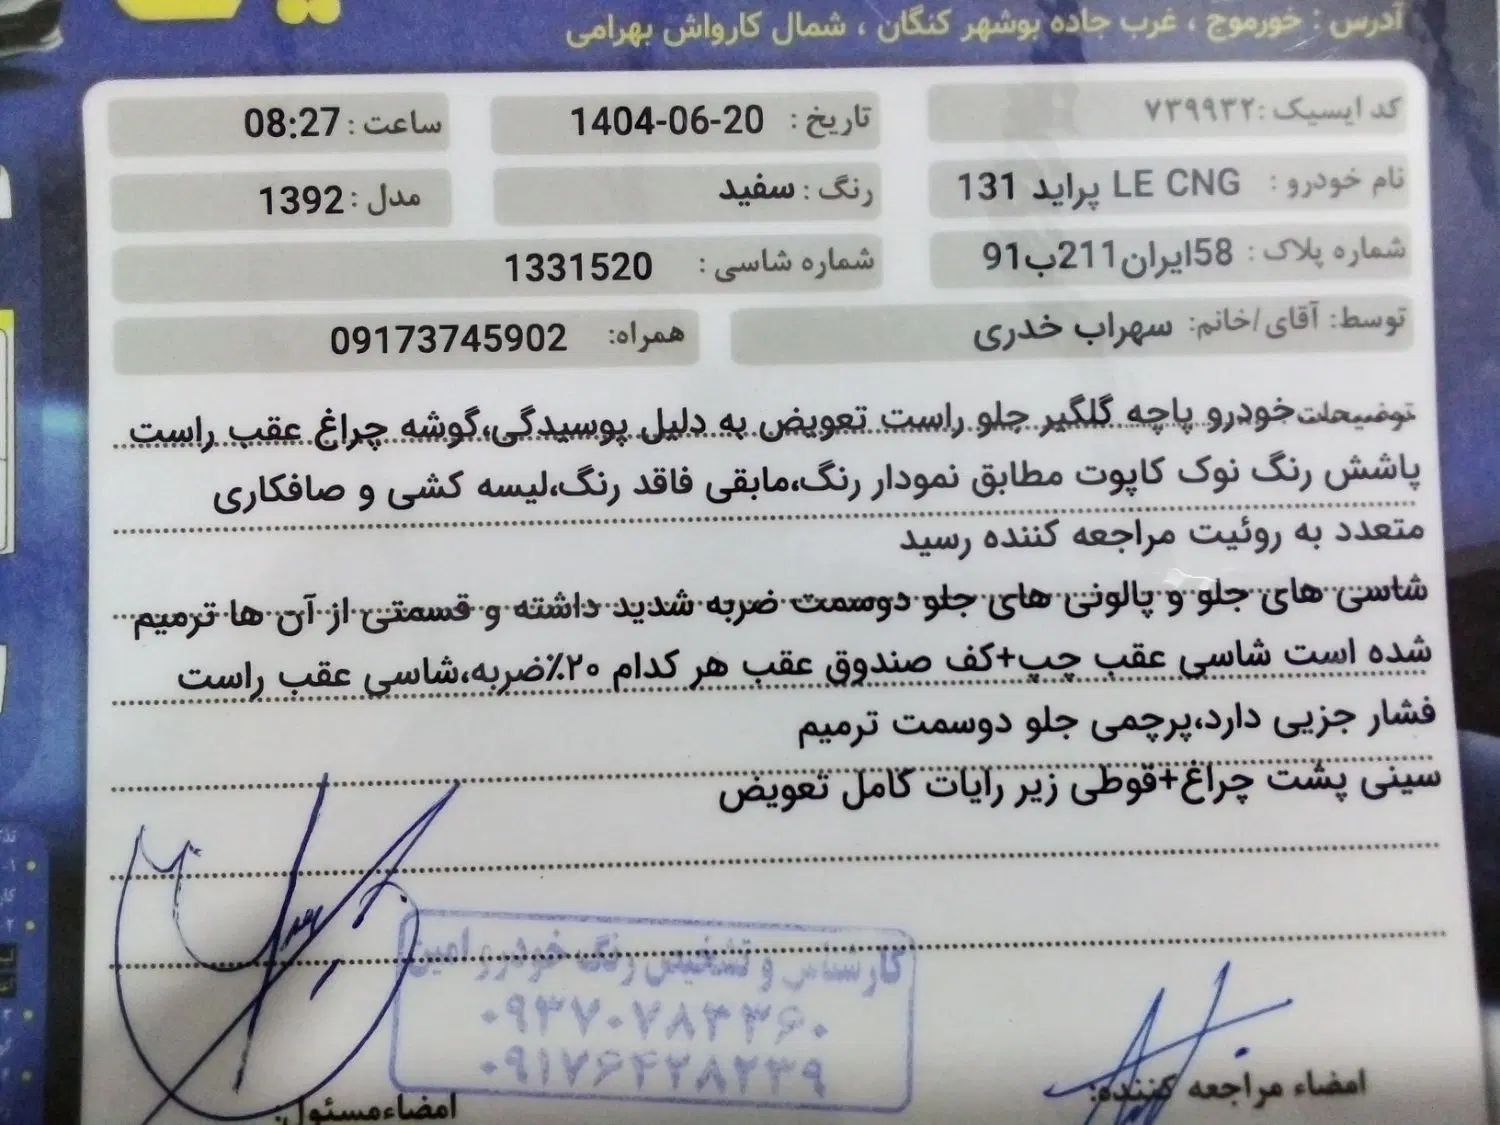 آدرس : خورموج ، غرب جاده بوشهر کنگان ، شمال کارواش بهرامی
کد ایسیک : ۷۳۹۹۳۲ تاریخ : 1404-06-20 ساعت : 08:27
نام خودرو : پراید 131 LE CNG رنگ : سفید مدل : 1392
شماره پلاک : 58ایران211ب91 شماره شاسی : 1331520
توسط: آقای/خانم: سهراب خدری همراه: 09173745902
توضیحات خودرو پاچه گلگیر جلو راست تعویض به دلیل پوسیدگی،گوشه چراغ عقب راست
پاشش رنگ نوک کاپوت مطابق نمودار رنگ،مابقی فاقد رنگ،لیسه کشی و صافکاری
متعدد به روئیت مراجعه کننده رسید
شاسی های جلو و پالونی های جلو دوسمت ضربه شدید داشته و قسمتی از آن ها ترمیم
شده است شاسی عقب چپ+کف صندوق عقب هر کدام ۲۰٪ضربه،شاسی عقب راست
فشار جزیی دارد،پرچمی جلو دوسمت ترمیم
سینی پشت چراغ+قوطی زیر رایات کامل تعویض
کارشناس و تشخیص رنگ خودرو امین
۰۹۳۷۰۷۸۳۳۶۰
۰۹۱۷۶۴۲۸۲۳۹
امضاء مراجعه کننده: امضاءمسئول: